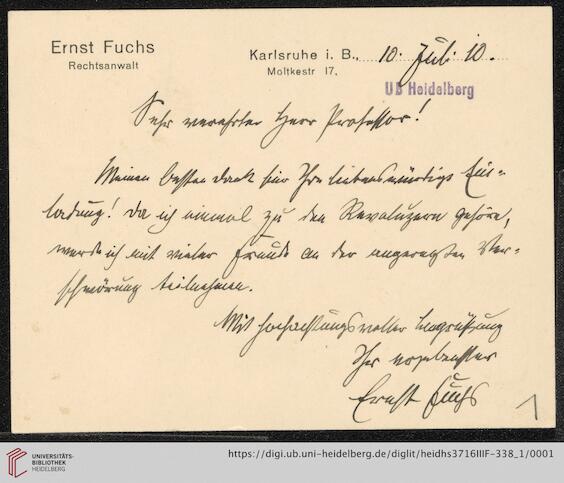 Ernst Fuchs
Rechtsanwalt
Karlsruhe i. B., 10. Juli 10.
Moltkestr 17.
UB Heidelberg
Sehr verehrter Herr Professor!
Meinen besten Dank für Ihre liebenswürdige Ein-
ladung! Da ich einmal zu den Revoluzern gehöre,
werde ich mit vieler Freude an der angeregten Ver-
schwörung teilnehmen.
Mit hochachtungsvoller Begrüssung
Ihr ergebenster
Ernst Fuchs
1
UNIVERSITÄTS-
BIBLIOTHEK
HEIDELBERG
https://digi.ub.uni-heidelberg.de/diglit/heidhs3716IIIF-338_1/0001